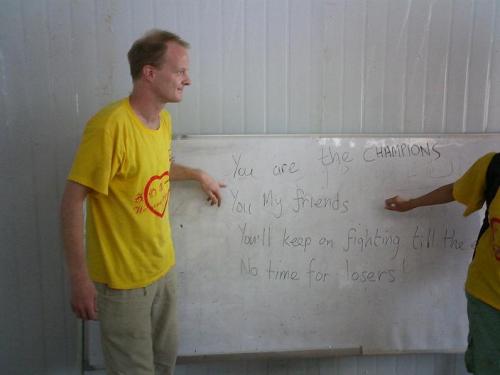 You are the CHAMPIONS
You My friends
You'll keep on fighting till the
No time for losers!